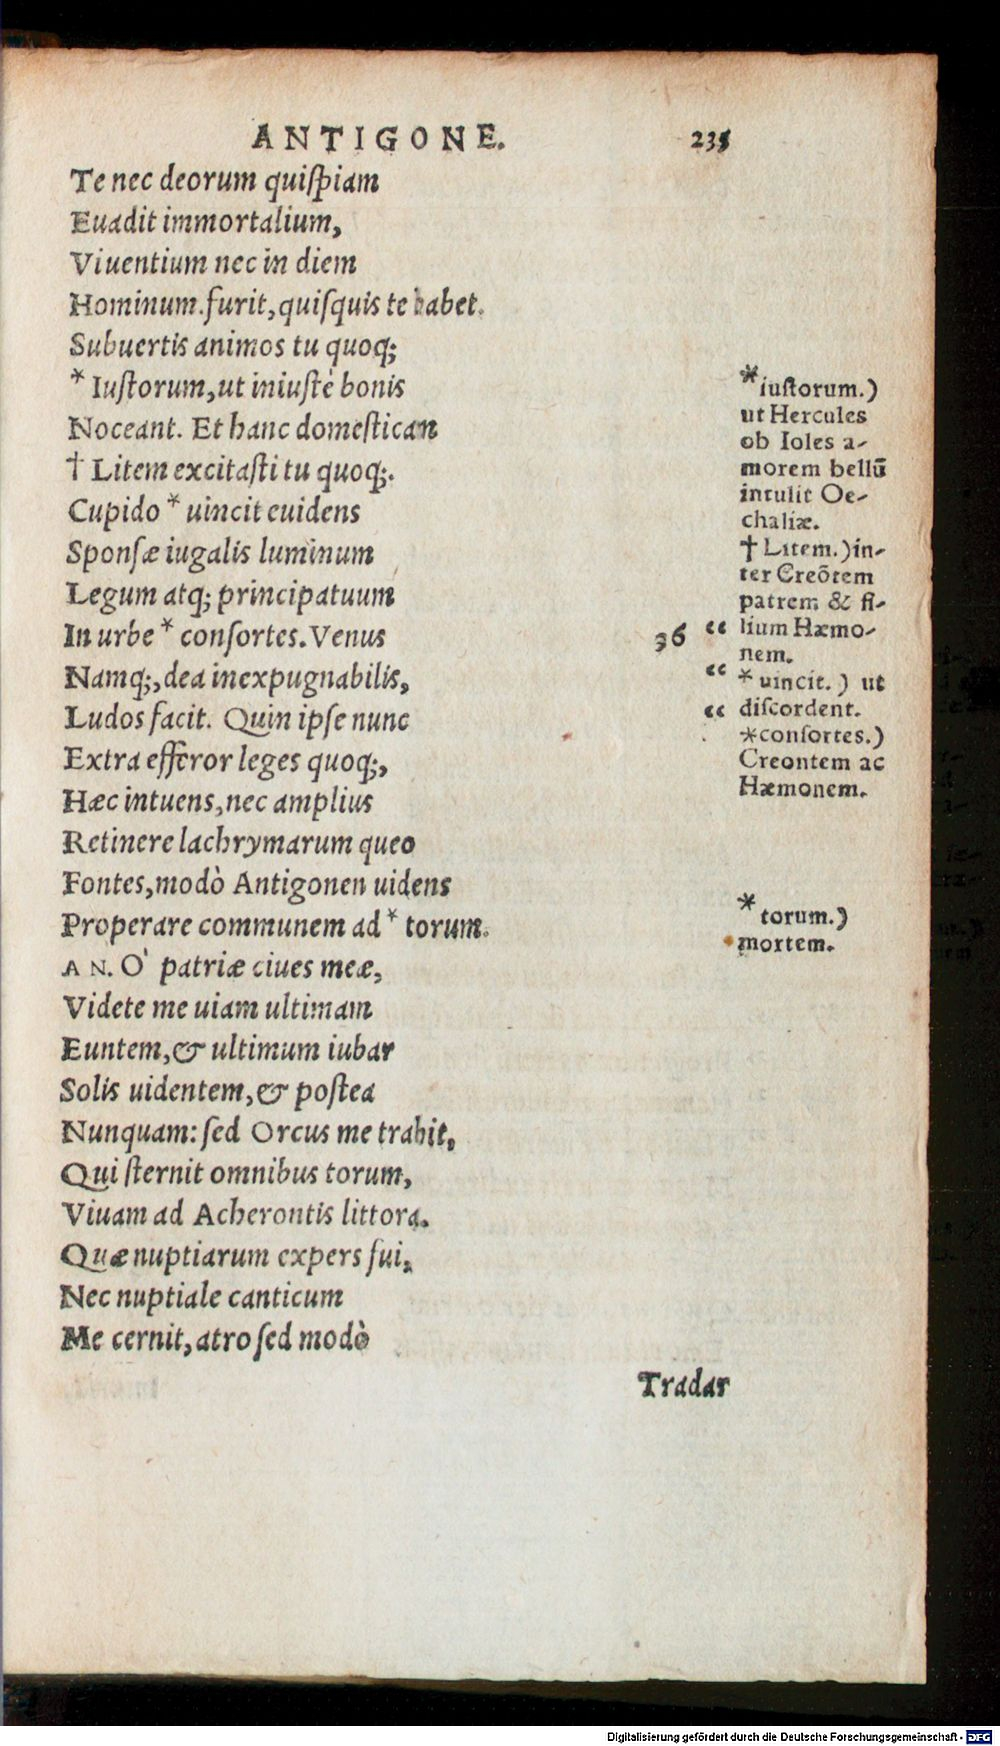 ANTIGONE. 235
Te nec deorum quiſpiam
Euadit immortalium,
Viuentium nec in diem
Hominum. furit, quiſquis te habet.
Subuertis animos tu quoq;
* Iuſtorum, ut iniuſtè bonis
Noceant. Et hanc domeſtican
† Litem excitaſti tu quoq;.
Cupido * uincit euidens
Sponſæ iugalis luminum
Legum atq; principatuum
In urbe * conſortes. Venus
Namq;, dea inexpugnabilis,
Ludos facit. Quin ipſe nunc
Extra efferor leges quoq;,
Hæc intuens, nec amplius
Retinere lachrymarum queo
Fontes, modò Antigonen uidens
Properare communem ad * torum.
AN. O' patriæ ciues meæ,
Videte me uiam ultimam
Euntem, & ultimum iubar
Solis uidentem, & poſtea
Nunquam: ſed Orcus me trahit,
Qui ſternit omnibus torum,
Viuam ad Acherontis littora.
Quæ nuptiarum expers fui,
Nec nuptiale canticum
Me cernit, atro ſed modò
Tradar
* iuſtorum.)
ut Hercules
ob Ioles a-
morem bellū
intulit Oe-
chaliæ.
† Litem.) in-
ter Creōtem
patrem & fi-
36 “ lium Hæmo-
nem.
“ * uincit.) ut
“ diſcordent.
* conſortes.)
Creontem ac
Hæmonem.
* torum.)
mortem.
Digitalisierung gefördert durch die Deutsche Forschungsgemeinschaft - DFG